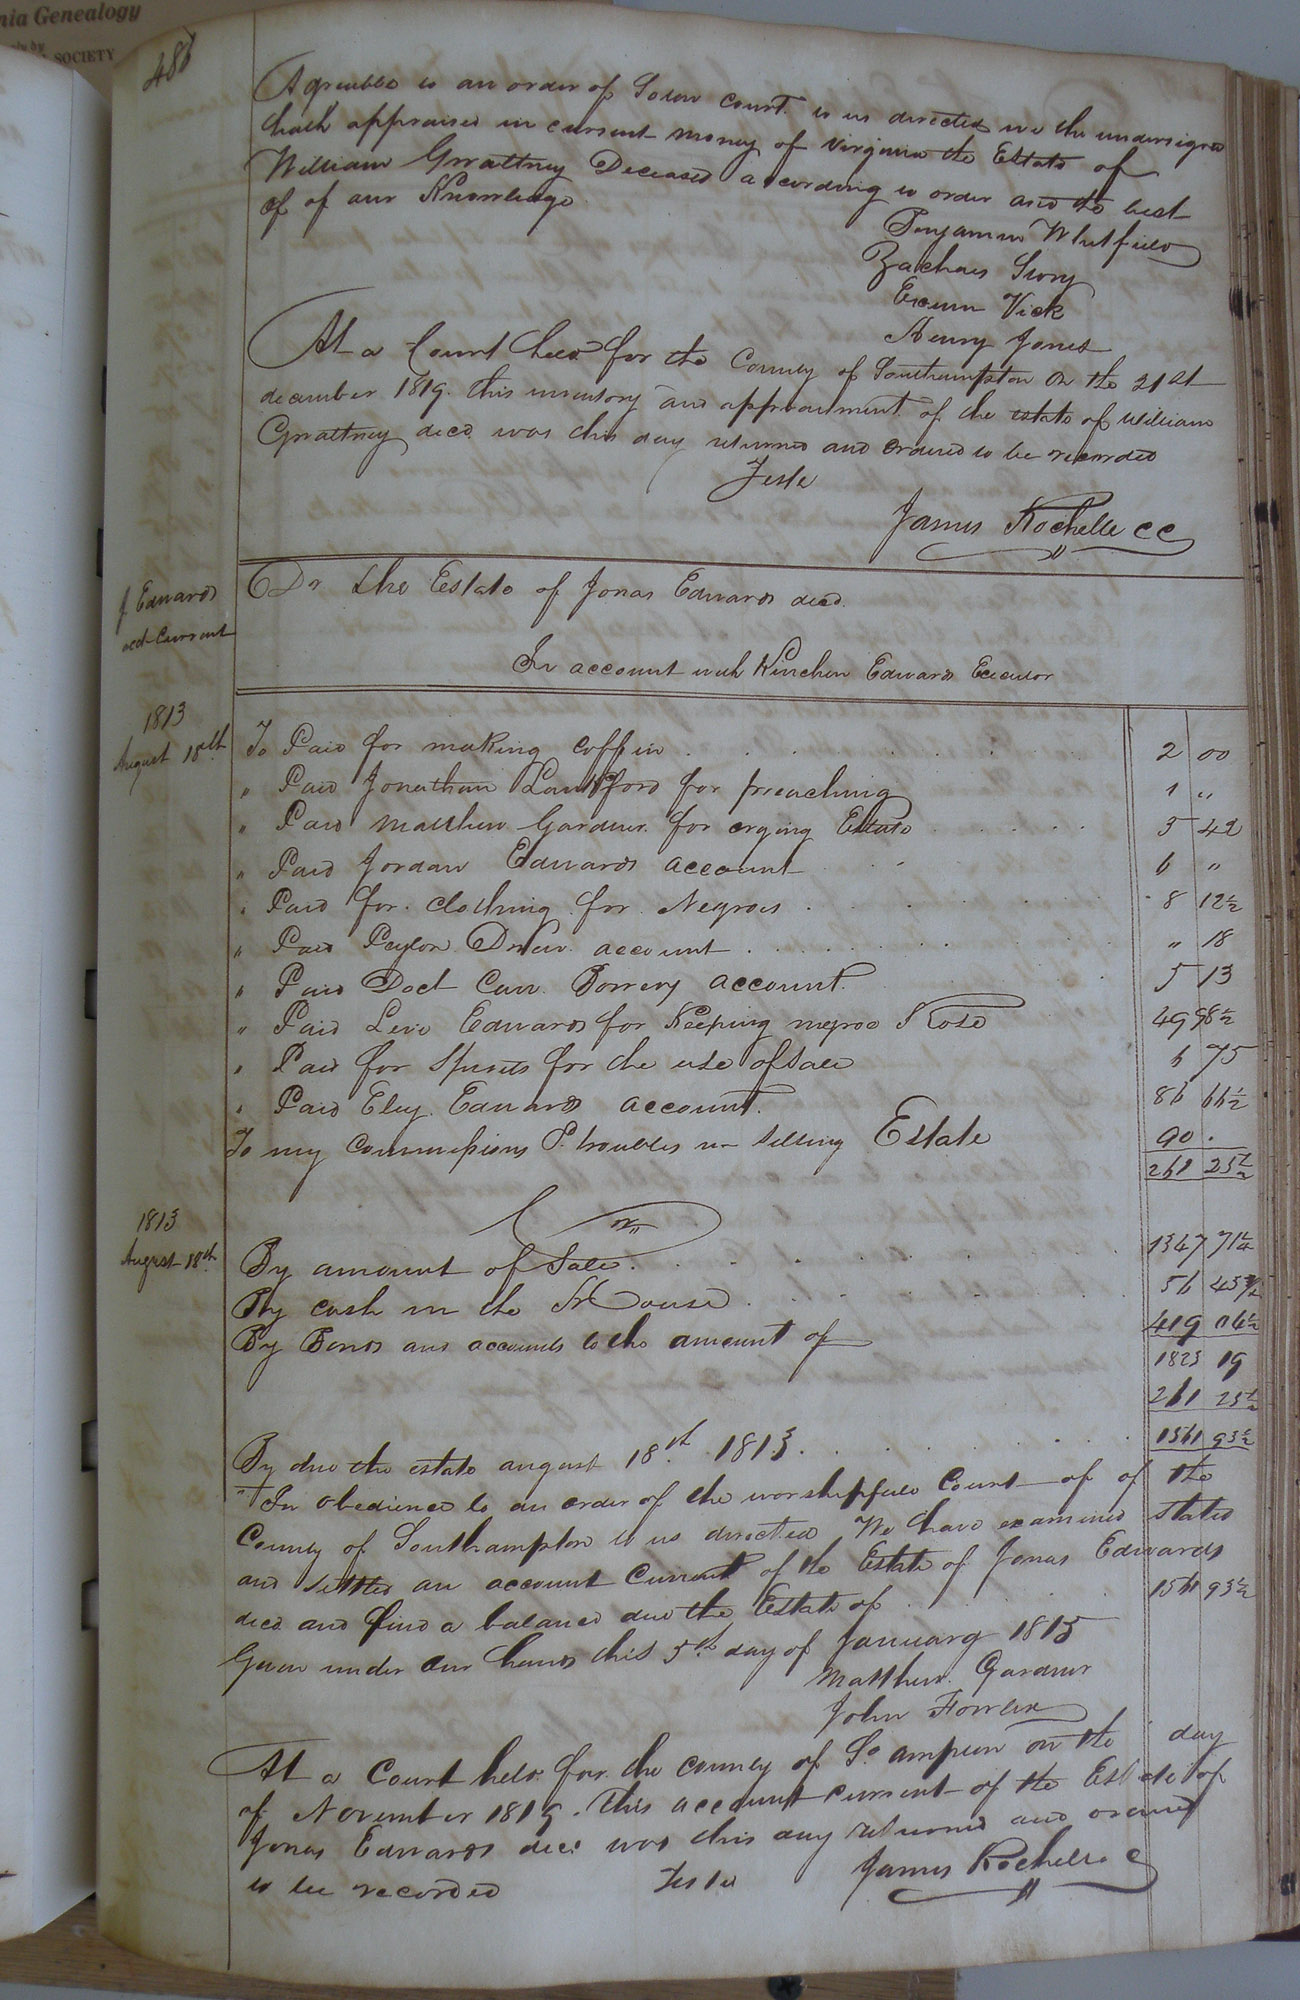 nia Genealogy
by
SOCIETY
486
Agreeable to an order of Soton Court to us directed we the undersigned
hath appraised in current money of Virginia the Estate of
William Gwaltney Deceased according to order and to the best
of of our Knowledge
Benjamin Whitfield
Zachaes
Exum Vick
Henry Jones
At a Court held for the County of Southampton on the 21st
december 1819. this inventory and appraisment of the estate of William
Gwaltney decd was this day returned and ordered to be recorded
Teste
James Rochelle CC
J Edwards
acct Current
Dr the Estate of Jonas Edwards decd
In account with Kinchen Edwards Executor
1813
August 18th To Paid for making coffin 2 00
" Paid Jonathan Lankford for preaching 1 "
" Paid Matthew Gardner for crying Estate 5 42
" Paid Jordan Edwards account 6 "
" Paid for clothing for Negroes 8 12½
" Paid Drew account " 18
" Paid Doct account 5 13
" Paid Levi Edwards for Keeping negroe Rose 49 98½
" Paid for Spirits for the use of Sale 6 75
" Paid Eley Edwards account 86 66½
To my commissions & troubles in selling Estate 90 .
261 25½
Cr
1813
August 18th By amount of Sale 1347 71¼
By cash in the House 56
By Bonds and accounts to the amount of 419
1823 19
261 25½
By due the estate august 18th 1813 1561 93½
In obedience to an order of the worshipfull Court of of the
County of Southampton to us directed We have examined stated
and settled an account Current of the Estate of Jonas Edwards
decd and find a balance due the Estate of 1561 93½
Given under our hands this 5th day of January 1815
Matthew Gardner
John Fowler
At a Court held for the county of So ampton on the day
of November 1819. this account current of the Estate of
Jonas Edwards decd was this day returned and ordered
to be recorded Teste James Rochelle C